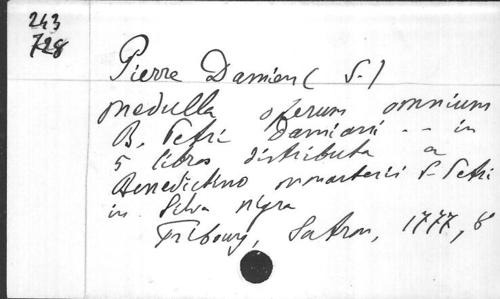 243
728
Pierre Damien ( S. )
medulla operum omnium
B. Petri Damiani - - in
5 libros distributa a
Benedictino monasterii S. Petri
in Silva nigra
Fribourg, Satron, 1777, 8°